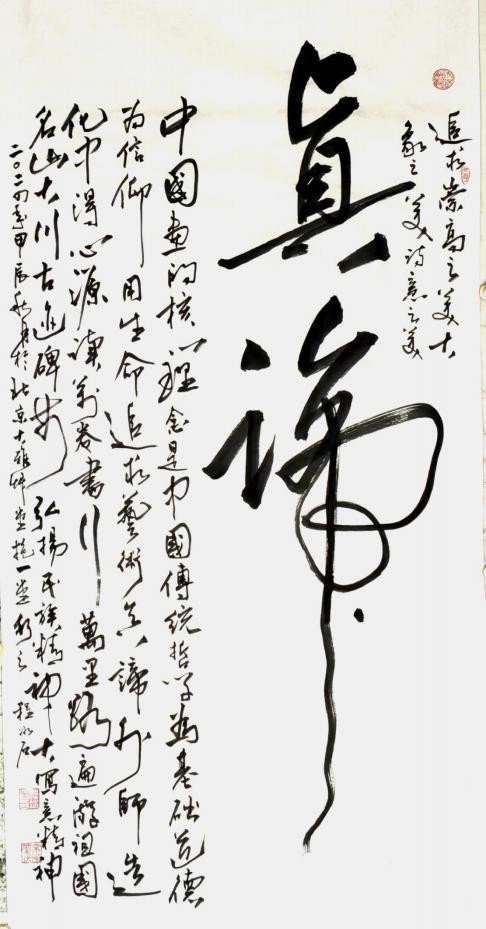 追求崇高之美大
象之美诗意之美
真谛
中國画的核心理念是中國傳统哲学為基础道德
为信仰用生命追求藝術真諦外師造
化中得心源读万卷書行萬里路遍游祖國
名山大川古迹碑林弘揚民族精神大寫意精神
二〇二四年甲辰秋月於北京大雅堂抱一堂